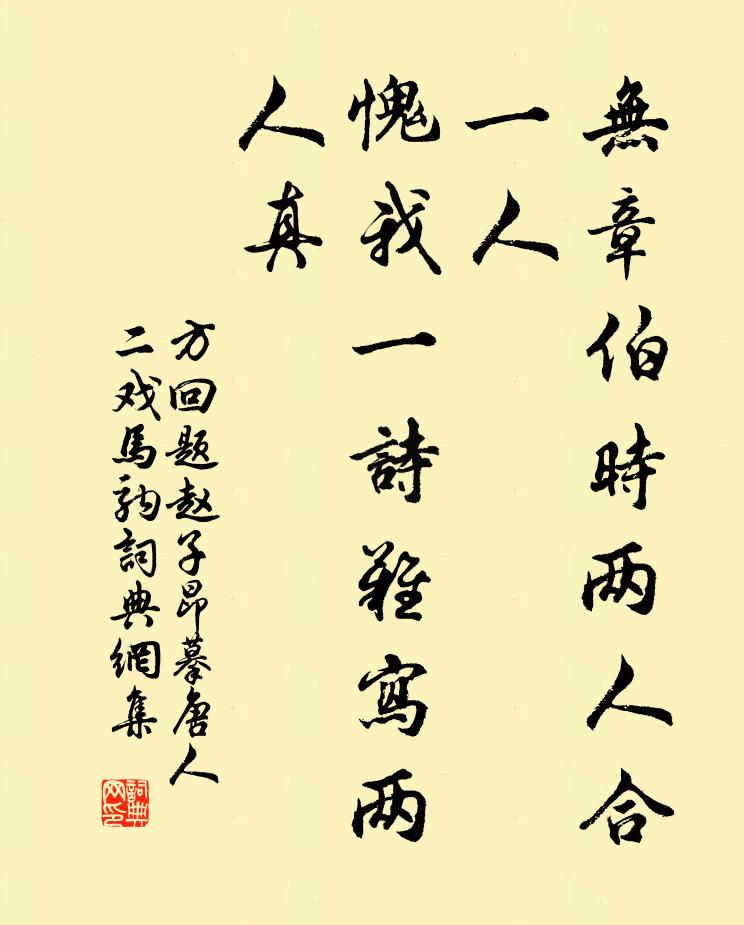 無章伯時两人合
一人
愧我一詩難寫两
人真
方回题赵子昂摹唐人
二戏馬韵詞典網集
詞典
网印